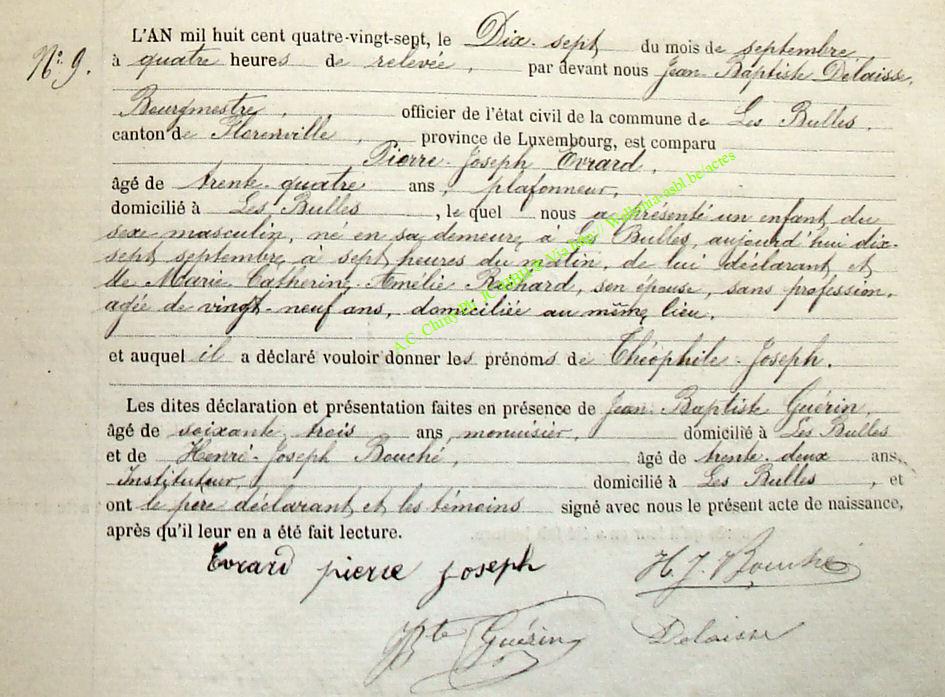 L'AN mil huit cent quatre-vingt-sept, le Dix-sept du mois de septembre,
N° 9.
à quatre heures de relevée, par devant nous Jean-Baptiste Delaisse,
Bourgmestre, officier de l'état civil de la commune de Les Bulles,
canton de Florenville, province de Luxembourg, est comparu
Pierre-Joseph Evrard,
âgé de trente-quatre ans, plafonneur,
domicilié à Les Bulles, le quel nous a présenté un enfant du
sexe masculin, né en sa demeure à Les Bulles, aujourd'hui dix-
sept septembre à sept heures du matin, de lui déclarant et
de Marie Catherine Amélie Richard, son épouse, sans profession,
agée de vingt-neuf ans, domiciliée au même lieu.
et auquel il a déclaré vouloir donner les prénoms de Théophile-Joseph.
Les dites déclaration et présentation faites en présence de Jean-Baptiste Guérin,
âgé de soixante trois ans, menuisier, domicilié à Les Bulles
et de Henri-Joseph Bouché, âgé de trente-deux ans,
Instituteur, domicilié à Les Bulles, et
ont le père déclarant et les témoins signé avec nous le présent acte de naissance,
après qu'il leur en a été fait lecture.
Evrard pierre joseph H. J. Bouché
JBte Guérin Delaisse
A.C. Chiny
asbl.be/actes